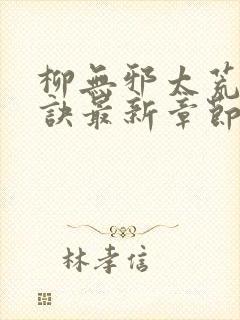 柳無邪太荒
訣最新章節
林孝信